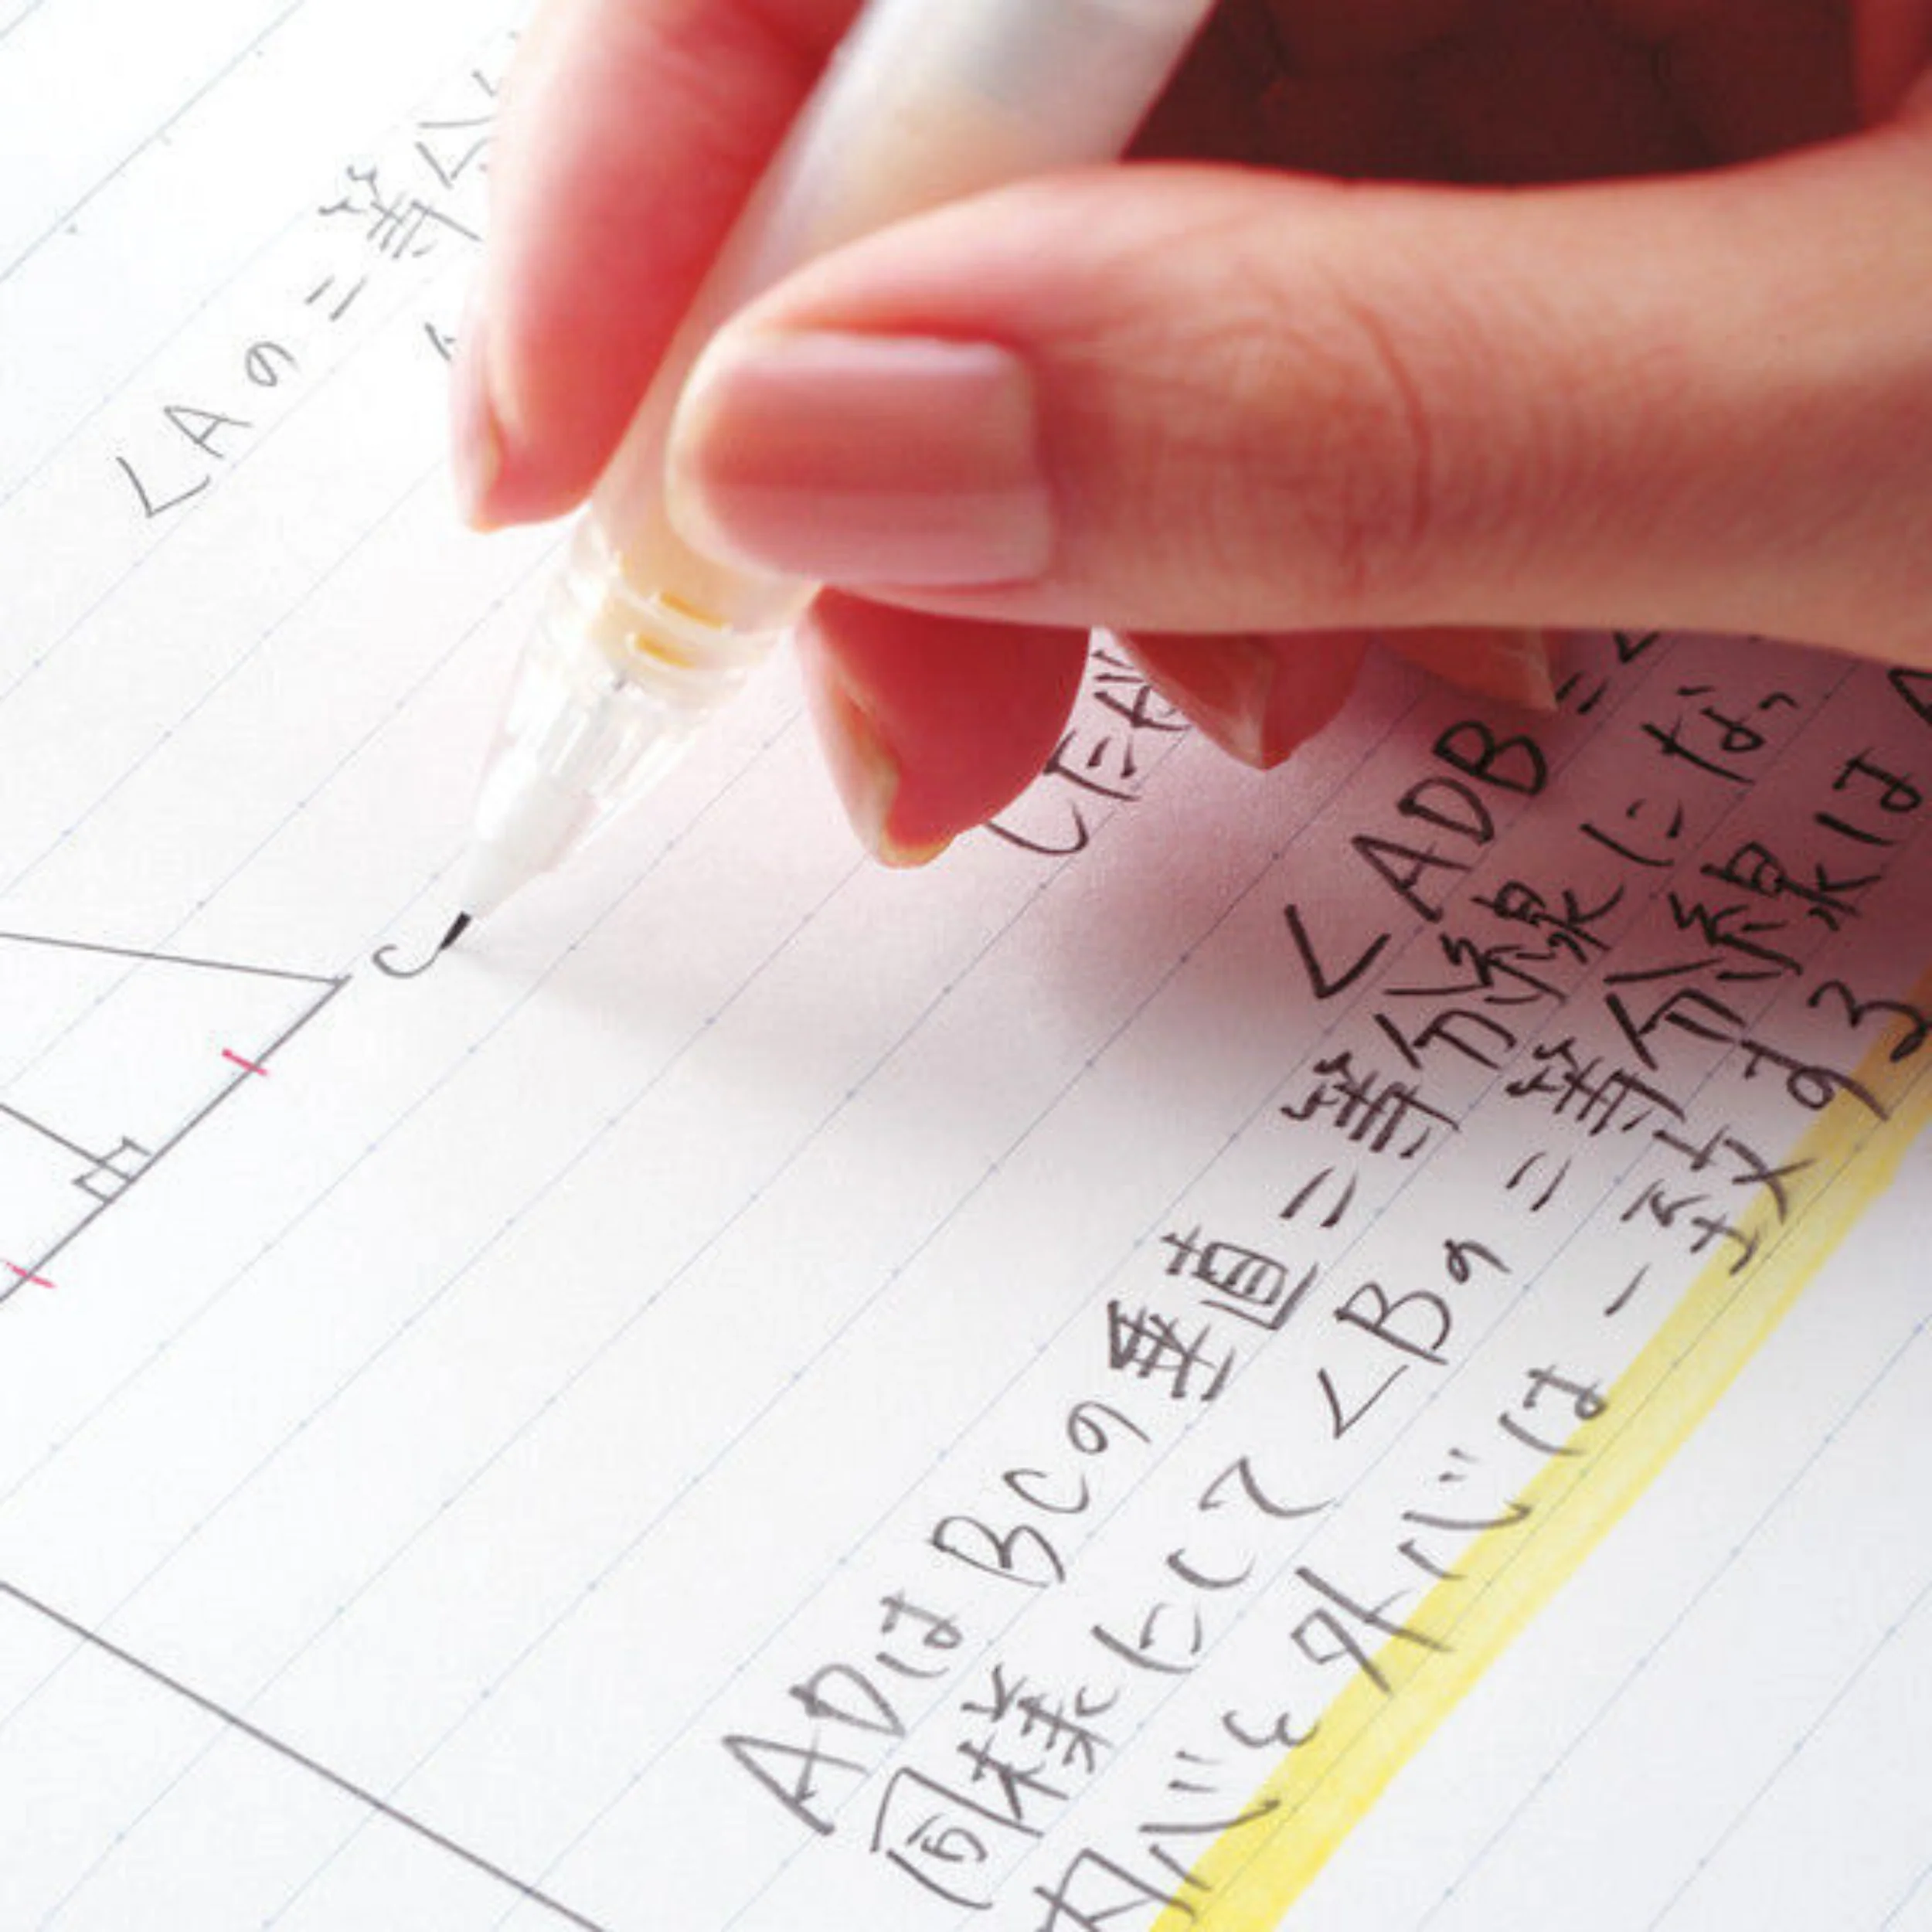 ∠Aの二等
C
(正
∠ADB =
ADはBCの垂直二等分線にな
同様にして∠Bの二等分線はA
内心と外心は一致する